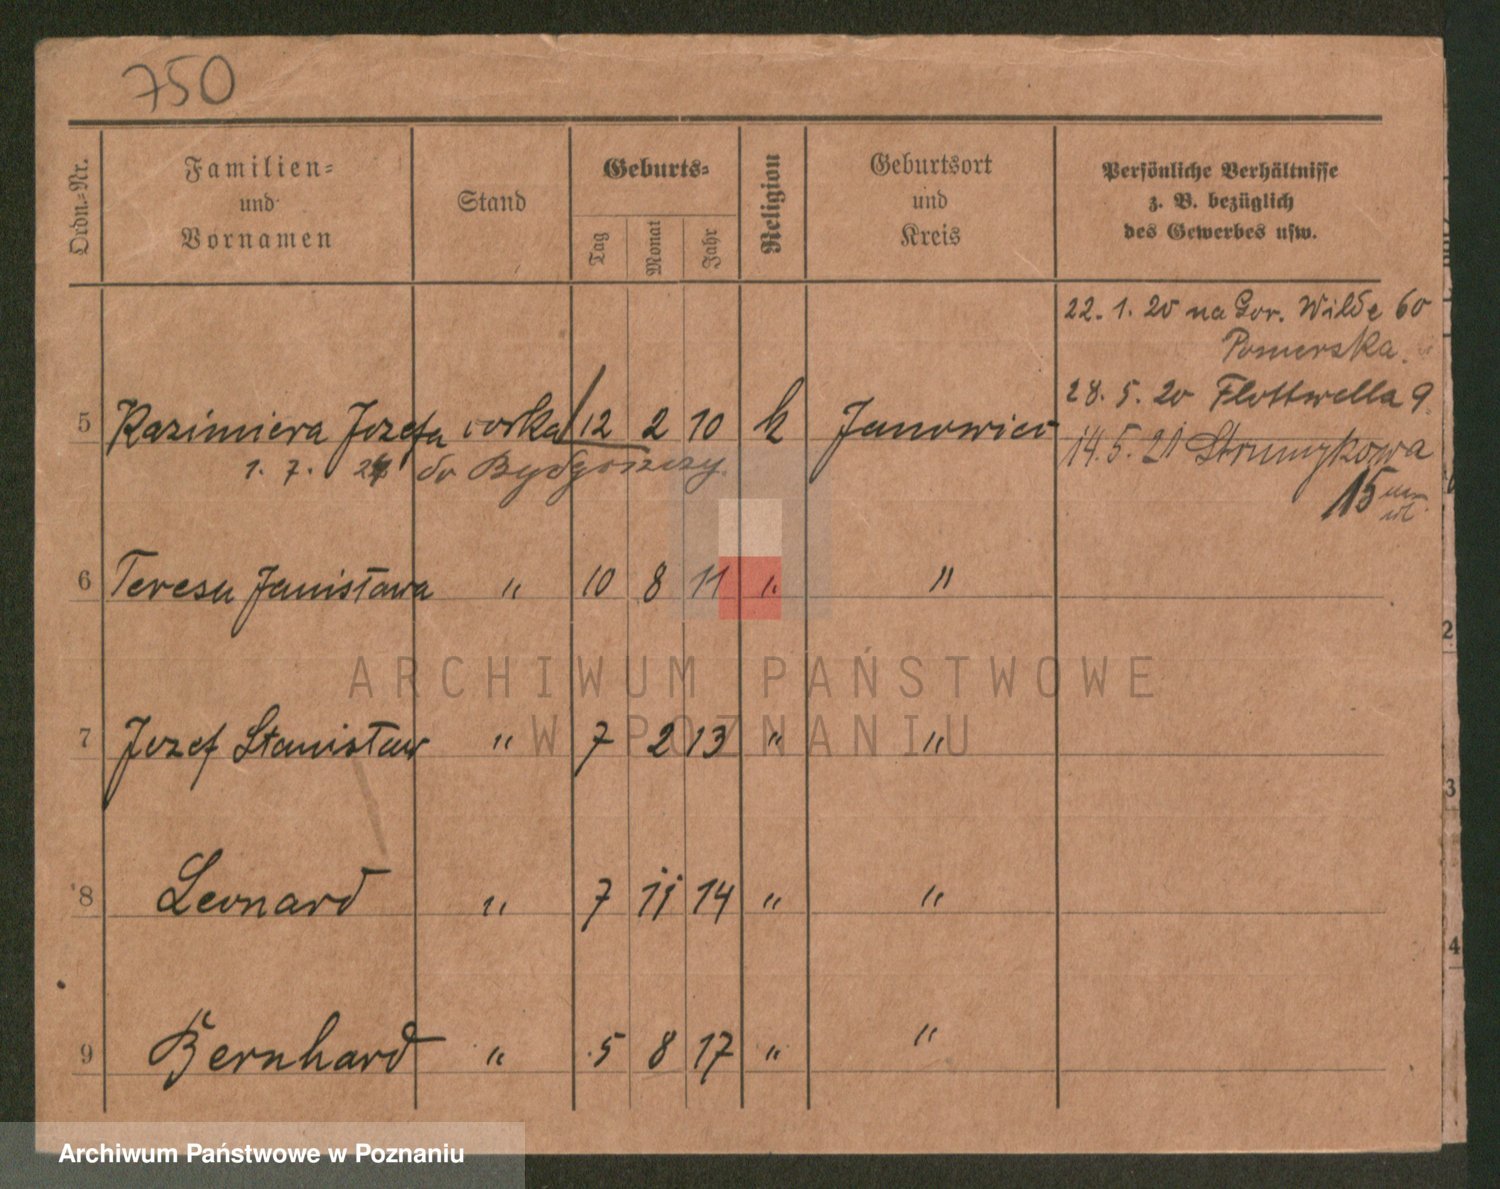 750
Ordn.-Nr.
Familien-
und
Vornamen
Stand
Geburts-
Tag
Monat
Jahr
Religion
Geburtsort
und
Kreis
Persönliche Verhältnisse
z. B. bezüglich
des Gewerbes usw.
22. 1. 20 na Gor. Wilde 60
Pomerska
28. 5. 20 Flottwella 9.
5 Kazimiera Jozefa corka 12 2 10 k Janowiec
14. 5. 21 Strumykowa
1. 7. 24 do Bydgoszczy
15
6 Teresa Janisława " 10 8 11 " "
ARCHIWUM PAŃSTWOWE
W POZNANIU
7 Jozef Stanisław " 7 2 13 " "
8 Leonard " 7 11 14 " "
9 Bernhard " 5 8 17 " "
2
3
4
Archiwum Państwowe w Poznaniu